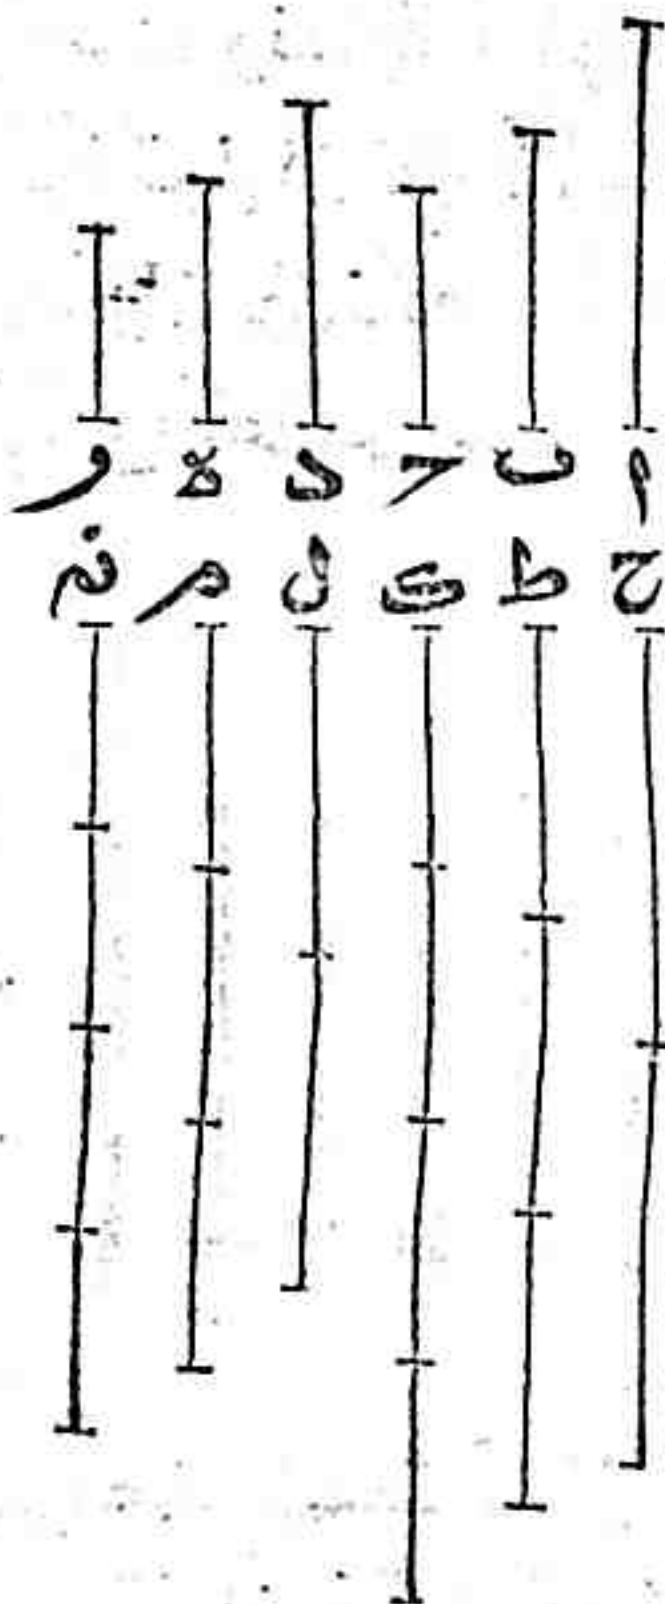 ا ب ج د ه و
ح ط ك ل م ن